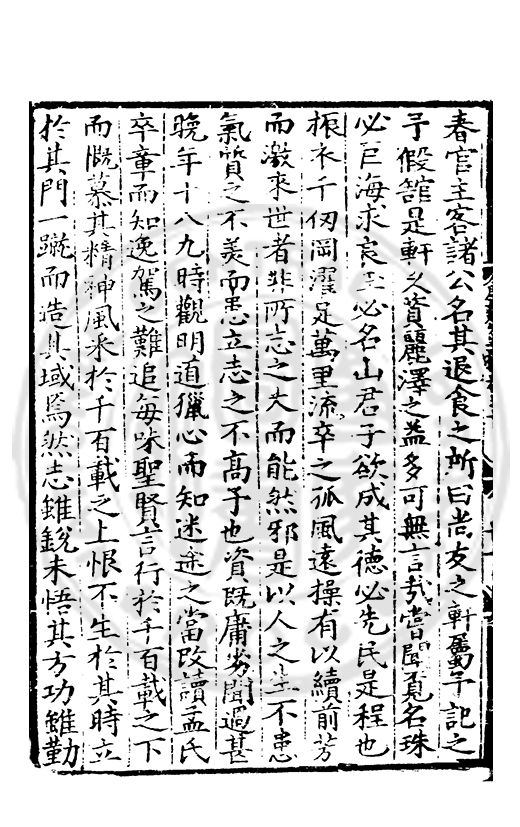 春官主客諸公名其退食之所曰尚友之軒屬予記之
予假舘是軒久資麗澤之益多可無言哉嘗聞覓名珠
必巨海求良玉必名山君子欲成其德必先民是程也
振衣千仞岡濯足萬里流卒之孤風遠操有以續前芳
而激來世者非所志之大而能然邪是以人之生不患
氣質之不美而患立志之不高予也資既庸劣聞過甚
晩年十八九時觀明道獵心而知迷途之當改讀孟氏
卒章而知逸駕之難追每味聖賢言行於千百載之下
而慨慕其精神風采於千百載之上恨不生於其時立
於其門一蹴而造其域焉然志雖銳未悟其方功雖勤